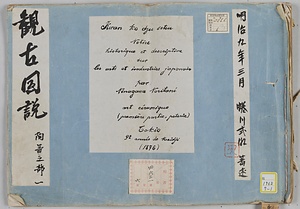 観古図説
陶器之部 一
Kwan ko dzu setsu
Notice
historique et descriptive
sur
les arts et industries japonais
par
Ninagawa Noritani
art céramique
(première partie, poterie)
Tokio
9e année de Meidji
(1876)
明治九年三月 蜷川式胤 著述